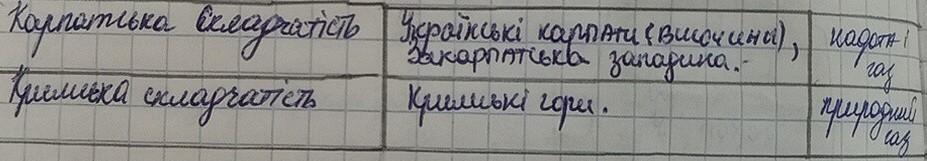 Карпатська складчатість
Українські карпати (височини),
Закарпатська западина.
надота і
газ
Кримська складчатість
Кримські гори.
природний
газ